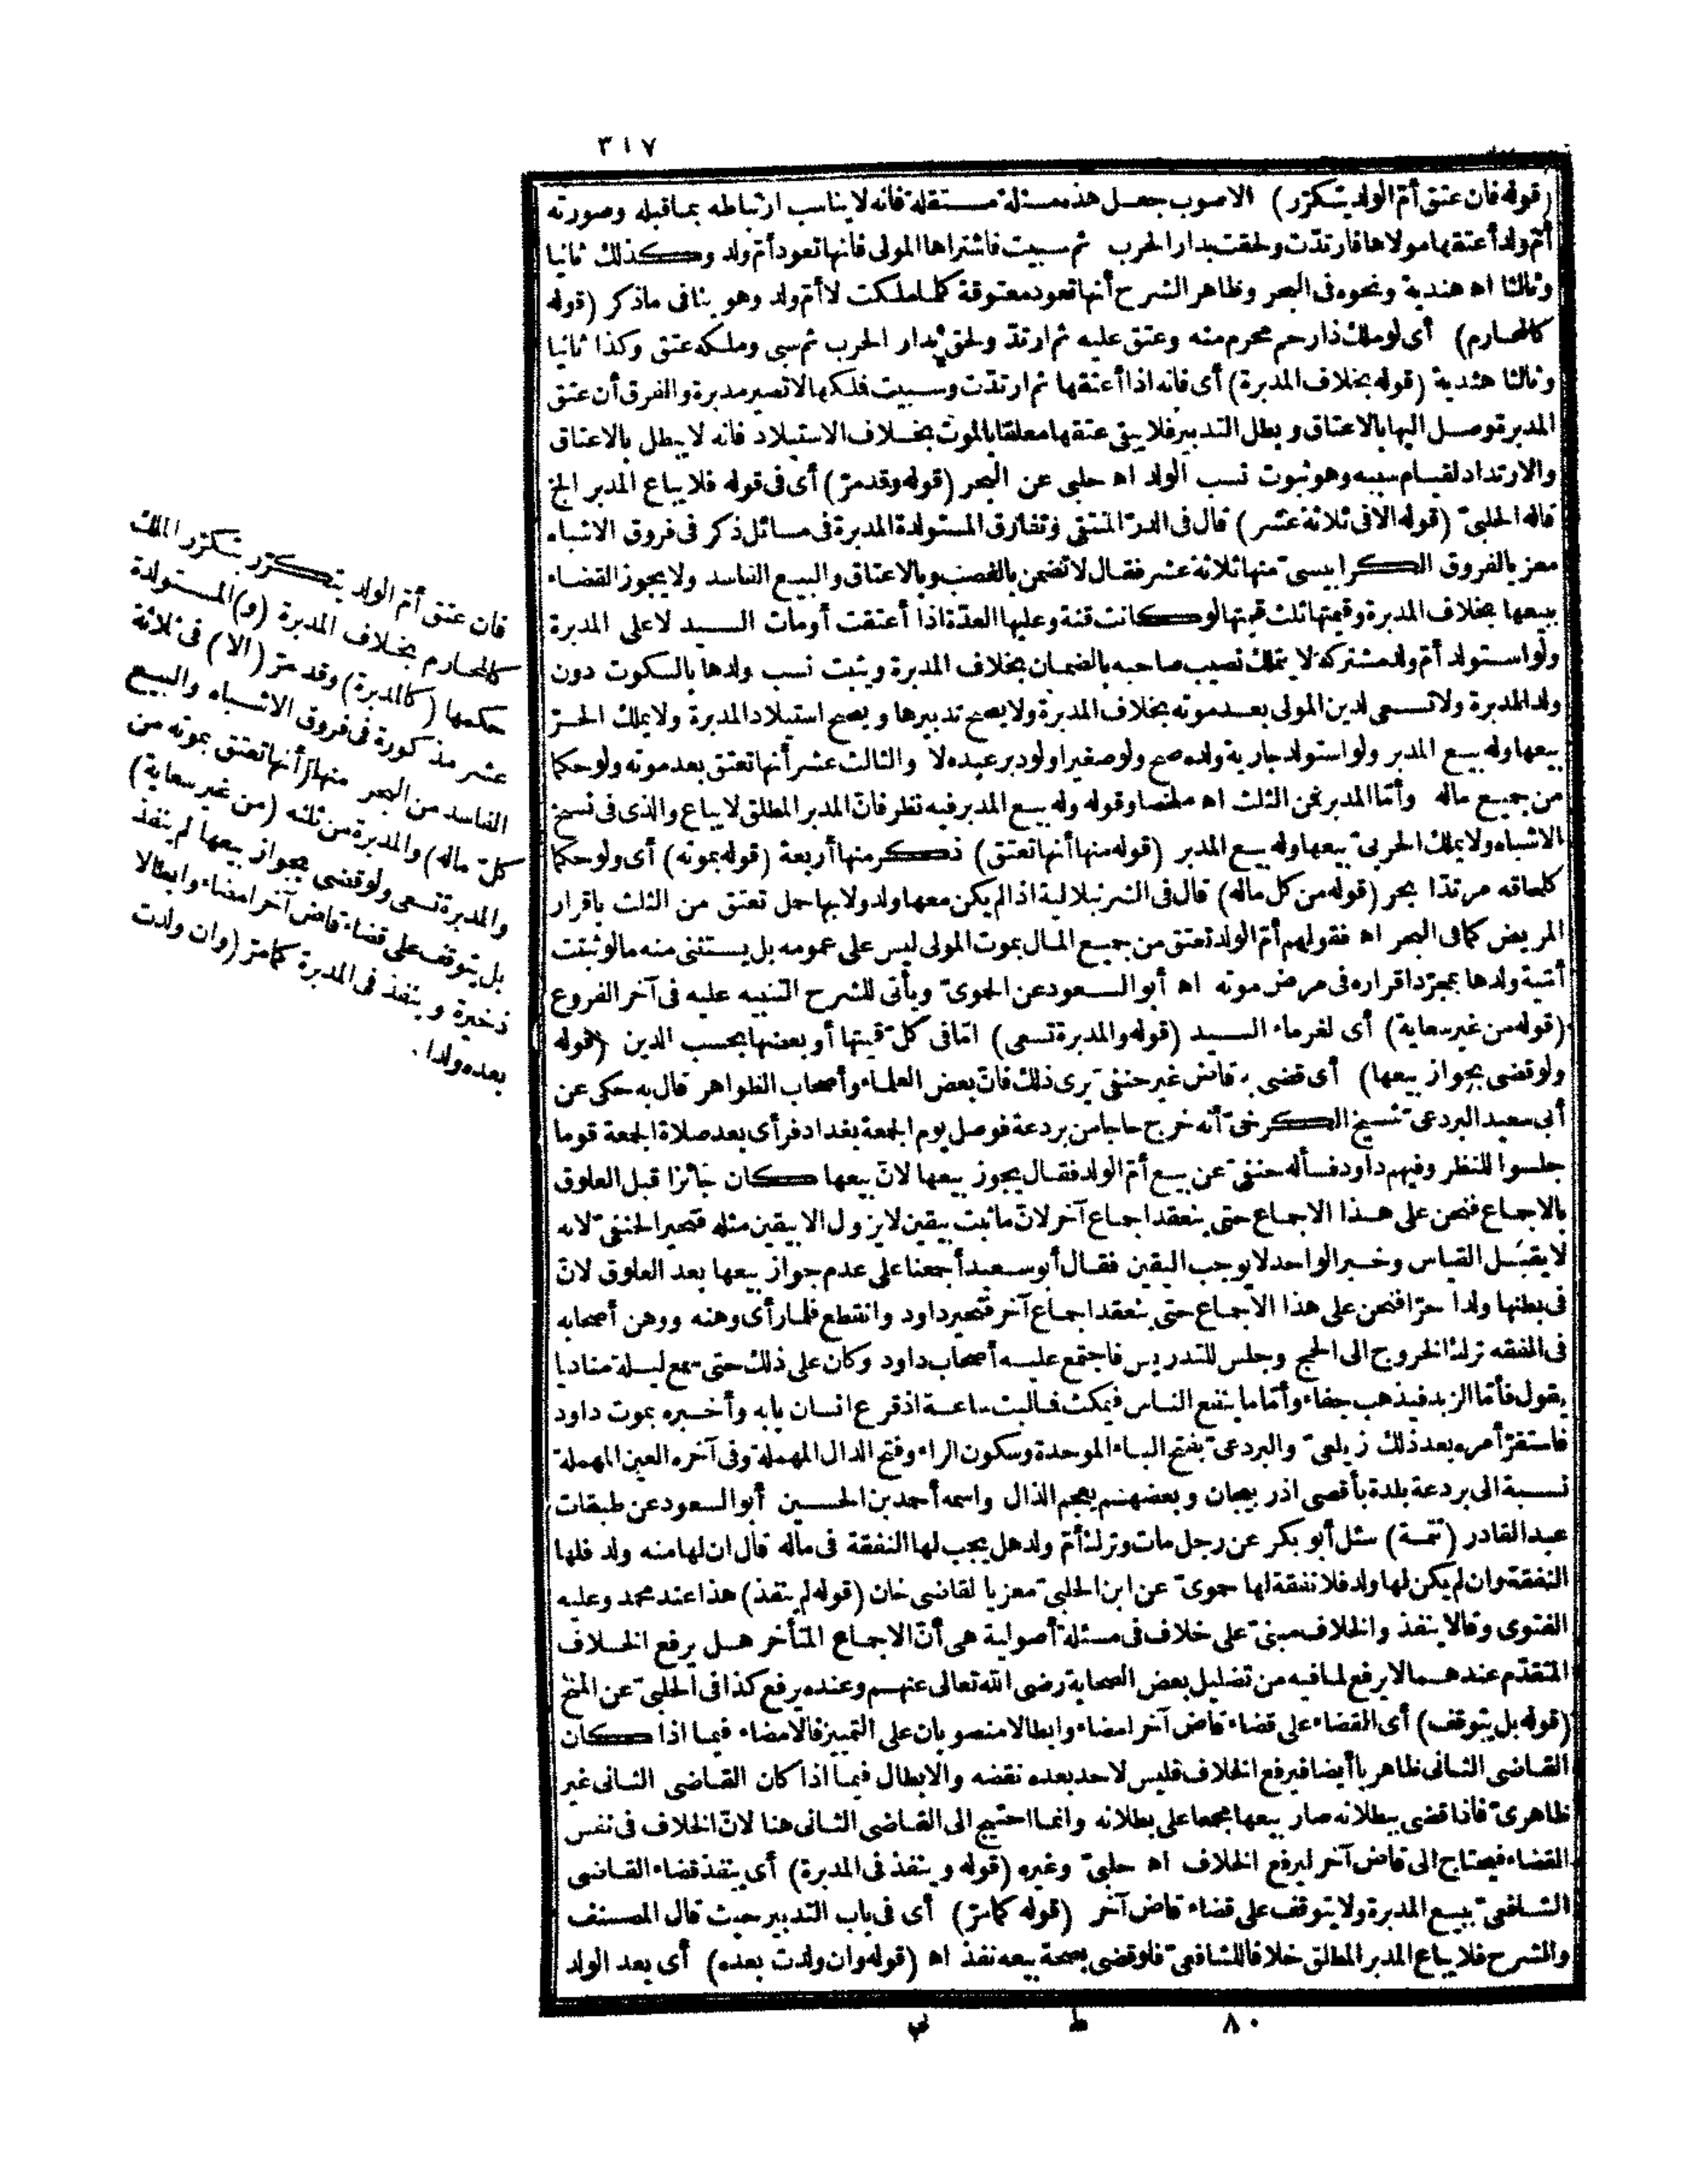 ٣١٧
(قوله فان عتق أمّ الولد يتكرّر) الاصوب جعل هذه مسئلة مستقلة فانه لا يناسب ارتباطه بما قبله وصورته
أمّ ولد أعتقها مولاها فارتدّت ولحقت بدار الحرب ثم سبيت فاشتراها المولى فانها تعود أمّ ولد وكذلك ثانيا
وثالثا اه هندية ونحوه فى البحر وظاهر الشرح أنها تعود معتوقة كلما ملكت لا أمّ ولد وهو ينافى ما ذكر (قوله
كالمحارم) أى لو ملك ذا رحم محرم منه وعتق عليه ثم ارتدّ ولحق بدار الحرب ثم سبى وملكه عتق وكذا ثانيا
وثالثا هندية (قوله بخلاف المدبرة) أى فانه اذا أعتقها ثم ارتدّت وسبيت فملكها لا تصير مدبرة والفرق أن عتق
المدبرة وصل اليها بالاعتاق وبطل التدبير فلا يبقى عتقها معلقا بالموت بخلاف الاستيلاد فانه لا يبطل بالاعتاق
والارتداد لقيام سببه وهو ثبوت نسب الولد اه حلبى عن البحر (قوله وقد مرّ) أى فى قوله فلا يباع المدبر الخ
قاله الحلبىّ (قوله الا فى ثلاثة عشر) قال فى الدرّ المنتقى وتفارق المستولدة المدبرة فى مسائل ذكر فى فروق الاشباه
معزيا لفروق الكرابيسىّ منها ثلاثة عشر فقال لا تضمن بالغصب وبالاعتاق والبيع الفاسد ولا يجوز القضاء
ببيعها بخلاف المدبرة وقيمتها ثلث قيمتها لو كانت قنة وعليها العدّة اذا أعتقت أو مات السيد لا على المدبرة
ولو استولد أمّ ولد مشتركة لا يتملك نصيب صاحبه بالضمان بخلاف المدبرة ويثبت نسب ولدها بالسكوت دون
ولد المدبرة ولا تسعى لدين المولى بعد موته بخلاف المدبرة ولا يصح تدبيرها ويصح استيلاد المدبرة ولا يملك الحرّ
بيعها وله بيع المدبر ولو استولد جارية ولده صح ولو صغيرا ولو دبر عبده لا والثالث عشر أنها تعتق بعد موته ولو حكما
من جميع ماله وأمّا المدبر فمن الثلث اه ملخصا وقوله وله بيع المدبر فيه نظر فانّ المدبر المطلق لا يباع والذى فى نسخ
الاشباه ولا يملك الحربىّ بيعها وله بيع المدبر (قوله منها أنها تعتق) ذكر منها أربعة (قوله بموته) أى ولو حكما
كلحاقه مرتدّا بحر (قوله من كل ماله) قال فى الشرنبلالية اذا لم يكن معها ولد ولا بها حمل تعتق من الثلث باقرار
المريض كما فى البحر اه فقولهم أمّ الولد تعتق من جميع المال بموت المولى ليس على عمومه بل يستثنى منه ما لو ثبتت
أمّية ولدها بمجرّد اقراره فى مرض موته اه أبو السعود عن الحموىّ ويأتى للشرح التنبيه عليه فى آخر الفروع
(قوله من غير سعاية) أى لغرماء السيد (قوله والمدبرة تسعى) امّا فى كلّ قيمتها أو بعضها بحسب الدين (قوله
ولو قضى بجواز بيعها) أى قضى به قاض غير حنفىّ يرى ذلك فانّ بعض العلماء وأصحاب الظواهر قال به حكى عن
أبى سعيد البردعىّ شيخ الكرخىّ أنه خرج حاجا من بردعة فوصل يوم الجمعة بغداد فرأى بعد صلاة الجمعة قوما
جلسوا للنظر وفيهم داود فسأله حنفىّ عن بيع أمّ الولد فقال يجوز بيعها لانّ بيعها كان جائزا قبل العلوق
بالاجماع فنحن على هذا الاجماع حتى ينعقد اجماع آخر لانّ ما ثبت بيقين لا يزول الا بيقين مثله فتحير الحنفىّ لانه
لا يقبل القياس وخبر الواحد لا يوجب اليقين فقال أبو سعيد أجمعنا على عدم جواز بيعها بعد العلوق لانّ
فى بطنها ولدا حرّا فنحن على هذا الاجماع حتى ينعقد اجماع آخر فتحير داود وانقطع فلما رأى وهنه ووهن أصحابه
فى الفقه ترك الخروج الى الحج وجلس للتدريس فاجتمع عليه أصحاب داود وكان على ذلك حتى سمع ليلة مناديا
يقول فأمّا الزبد فيذهب جفاء وأمّا ما ينفع الناس فيمكث فما لبث ساعة اذ قرع انسان بابه وأخبره بموت داود
فاستقرّ أمره بعد ذلك زيلعىّ والبردعىّ بفتح الباء الموحدة وسكون الراء وفتح الدال المهملة وفى آخره العين المهملة
نسبة الى بردعة بلدة بأقصى اذربيجان وبعضهم يعجم الذال واسمه أحمد بن الحسين أبو السعود عن طبقات
عبد القادر (تتمة) سئل أبو بكر عن رجل مات وترك أمّ ولد هل يجب لها النفقة فى ماله قال ان لها منه ولد فلها
النفقة وان لم يكن لها ولد فلا نفقة لها حموىّ عن ابن الحلبىّ معزيا لقاضى خان (قوله لم ينفذ) هذا عند محمد وعليه
الفتوى وقالا ينفذ والخلاف مبنىّ على خلاف فى مسئلة أصولية هى أنّ الاجماع المتأخر هل يرفع الخلاف
المتقدّم عندهما لا يرفع لما فيه من تضليل بعض الصحابة رضى الله تعالى عنهم وعنده يرفع كذا فى الحلبىّ عن المنح
(قوله بل يتوقف) أى القضاء على قضاء قاض آخر امضاء وابطالا منصوبان على التمييز فالامضاء فيما اذا كان
القاضى الثانى ظاهريا أيضا فيرفع الخلاف فليس لاحد بعده نقضه والابطال فيما اذا كان القاضى الثانى غير
ظاهرىّ فاذا قضى ببطلانه صار بيعها مجمعا على بطلانه وانما احتيج الى القاضى الثانى هنا لانّ الخلاف فى نفس
القضاء فيحتاج الى قاض آخر ليرفع الخلاف اه حلبىّ وغيره (قوله وينفذ فى المدبرة) أى ينفذ قضاء القاضى
الشافعىّ ببيع المدبرة ولا يتوقف على قضاء قاض آخر (قوله كما مرّ) أى فى باب التدبير حيث قال المصنف
والشرح فلا يباع المدبر المطلق خلافا للشافعىّ فلو قضى بصحة بيعه نفذ اه (قوله وان ولدت بعده) أى بعد الولد
فان عتق أمّ الولد يتكرّر بتكرّر الملك
كالمحارم بخلاف المدبرة (و) المستولدة
حكمها (كالمدبرة) وقد مرّ (الا) فى ثلاثة
عشر مذكورة فى فروق الاشباه والبيع
الفاسد من البحر منها (أنها تعتق بموته من
كلّ ماله) والمدبرة من ثلثه (من غير سعاية)
والمدبرة تسعى ولو قضى بجواز بيعها لم ينفذ
بل يتوقف على قضاء قاض آخر امضاء وابطالا
ذخيرة وينفذ فى المدبرة كما مرّ (وان ولدت
بعده ولدا.
٨٠ ط